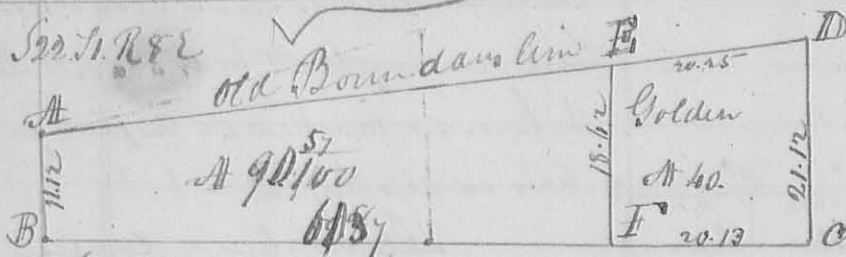 S22. T1. R8E
old Boundary line
E
D
20.25
Golden
A
11.12
A 90 57/100
18.62
A 40.
21.12
B
F
20.13
C